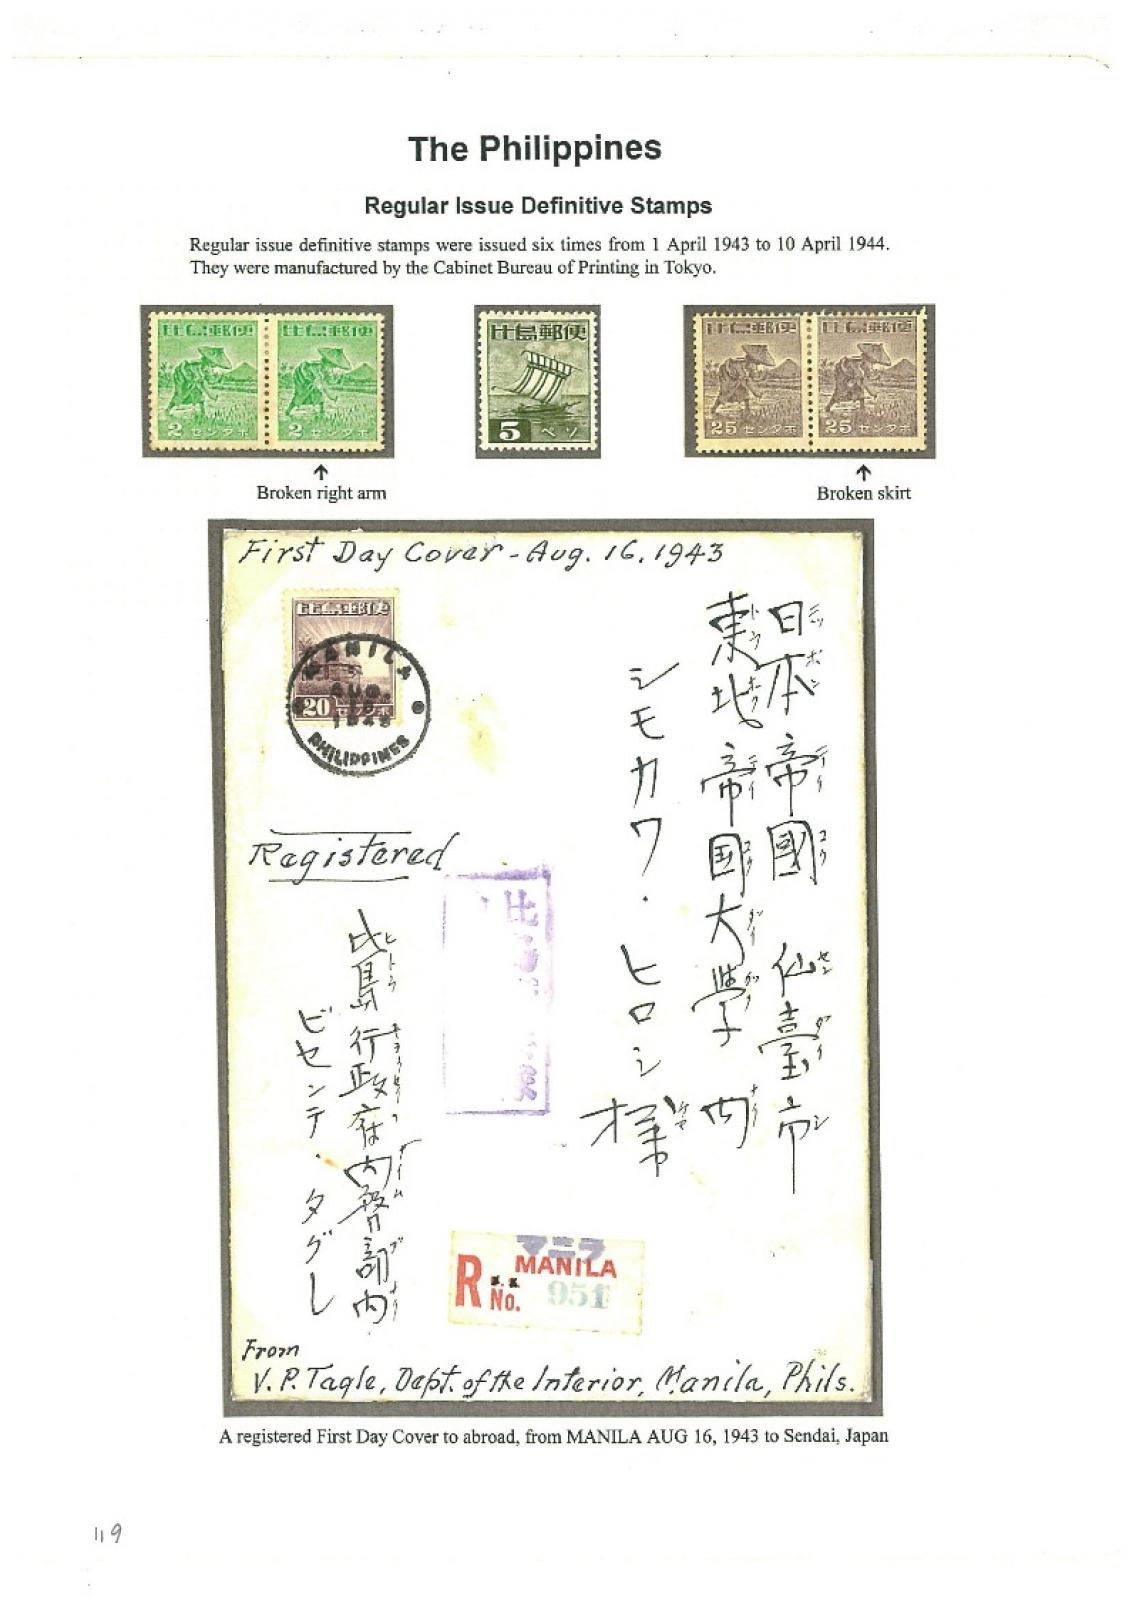 The Philippines
Regular Issue Definitive Stamps
Regular issue definitive stamps were issued six times from 1 April 1943 to 10 April 1944.
They were manufactured by the Cabinet Bureau of Printing in Tokyo.
比島郵便
2 センタボ
比島郵便
2 センタボ
比島郵便
5 ペソ
比島郵便
25 センタボ
比島郵便
25 センタボ
Broken right arm
Broken skirt
First Day Cover - Aug. 16, 1943
比島郵便
20 センタボ
MANILA
AUG. 16
1943
PHILIPPINES
日本帝國 仙臺市
東北帝国大學内
シモカワ・ヒロシ様
Registered
比島行政府内務部内
ビセンテ・タグレ
マニラ
R MANILA
No. 951
From
V. P. Tagle, Dept. of the Interior, Manila, Phils.
A registered First Day Cover to abroad, from MANILA AUG 16, 1943 to Sendai, Japan
119